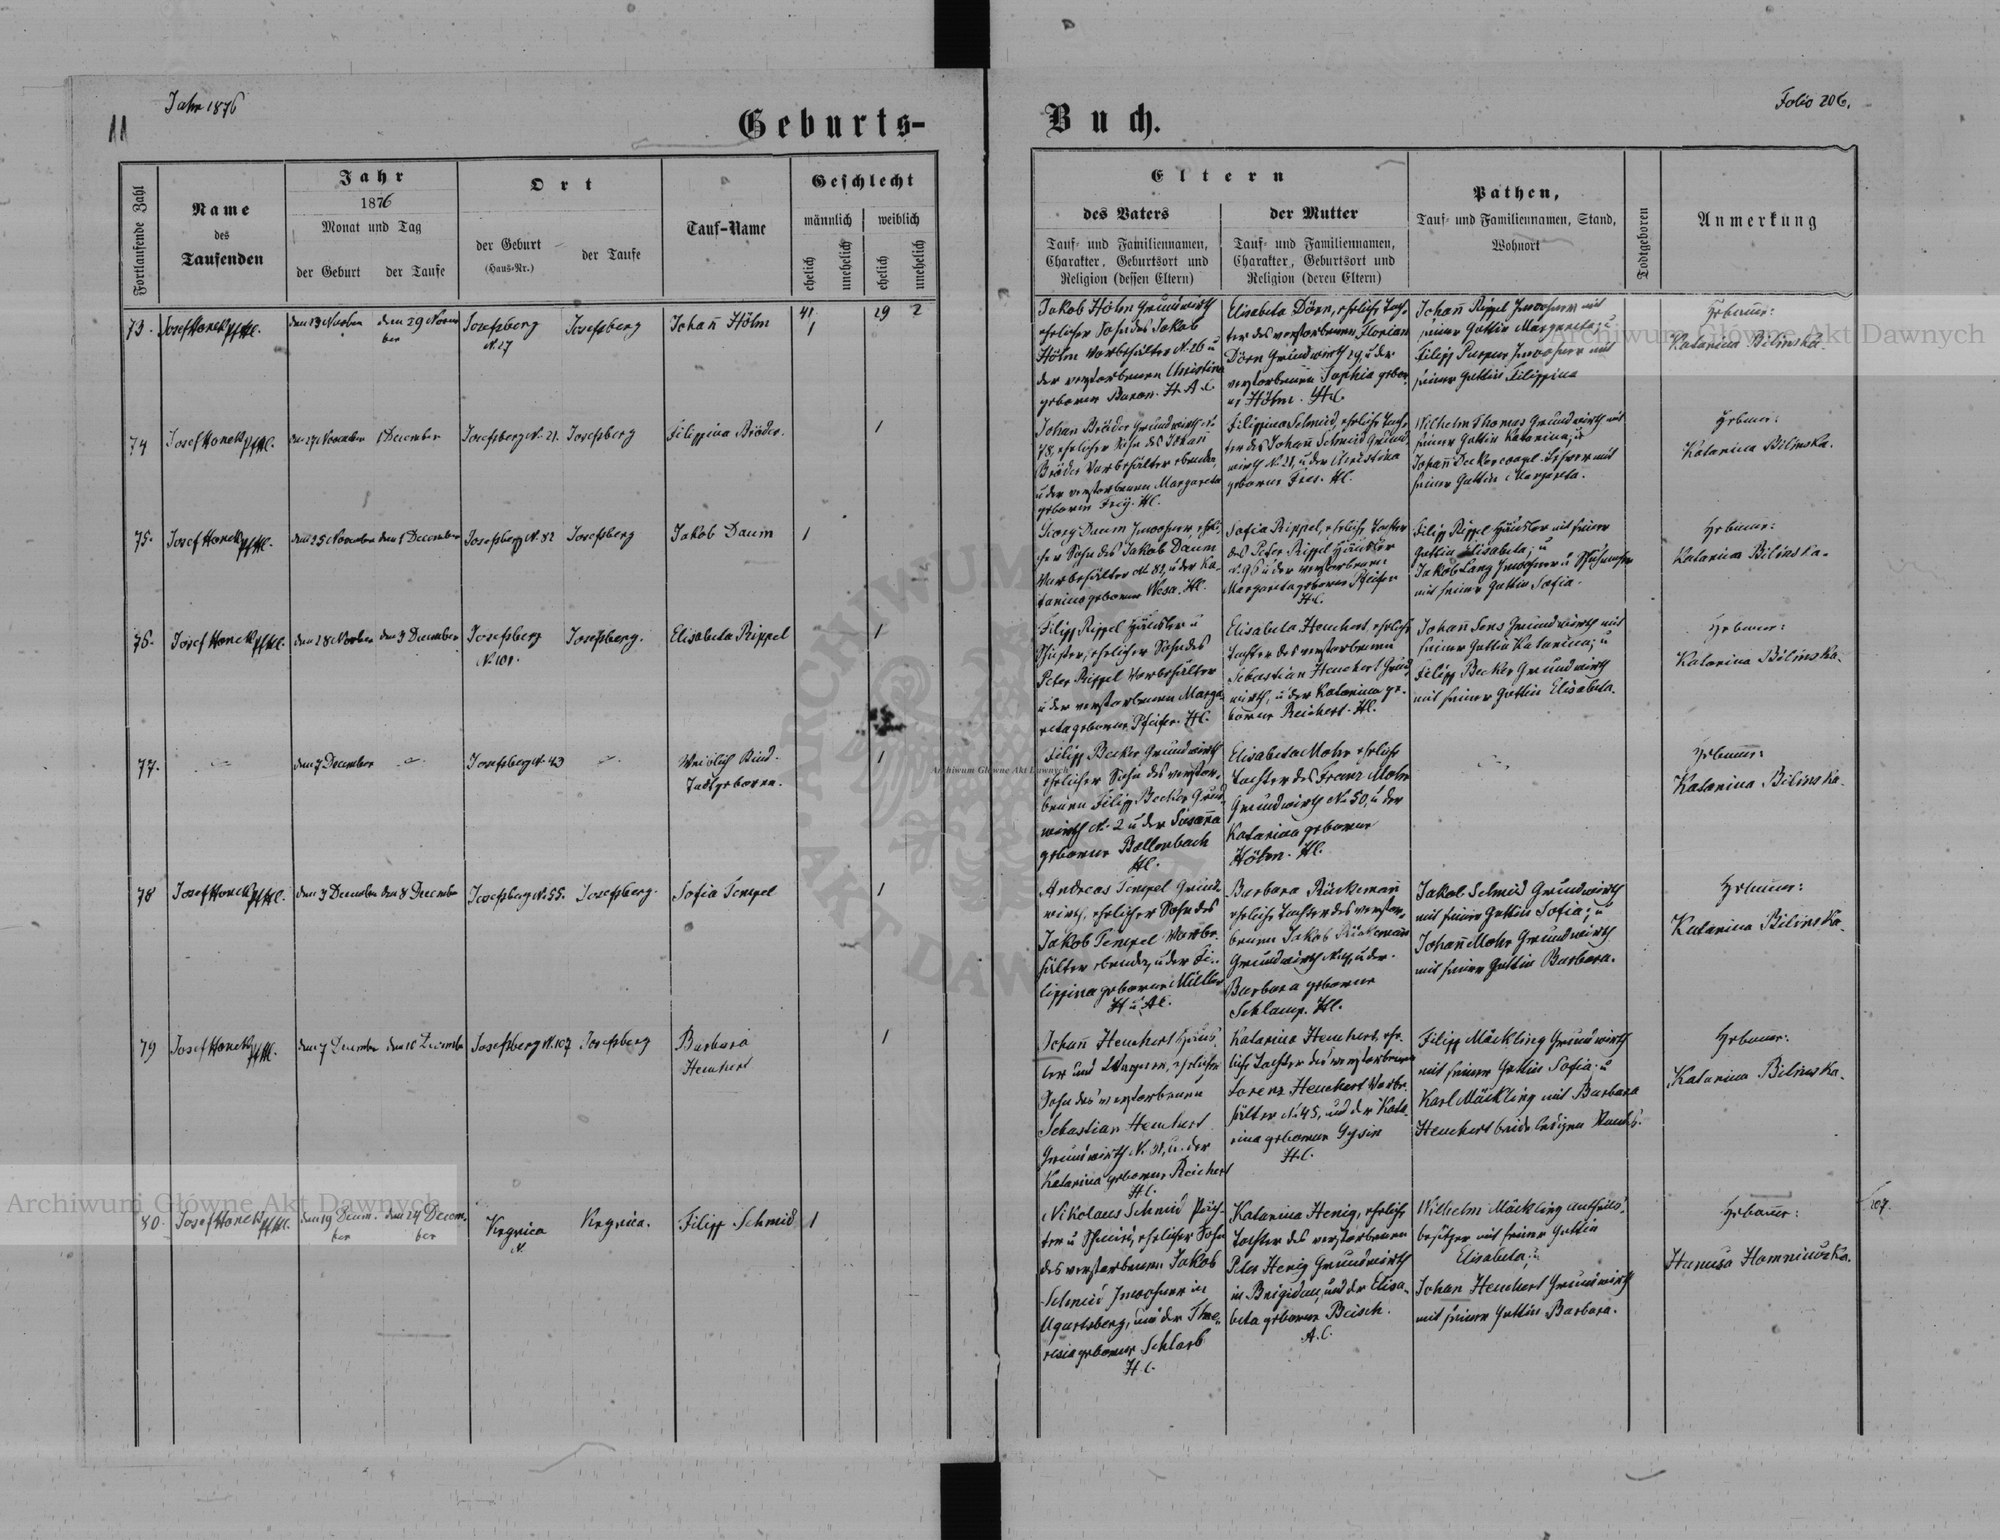 Jahr 1876
11
Geburts-
Buch.
Folio 206.
Fortlaufende Zahl
Name
des
Taufenden
Jahr
1876
Monat und Tag
der Geburt
der Taufe
Ort
der Geburt
(Haus-Nr.)
der Taufe
Tauf-Name
Geschlecht
männlich
weiblich
ehelich
unehelich
ehelich
unehelich
Eltern
des Vaters
Tauf- und Familiennamen,
Charakter, Geburtsort und
Religion (dessen Eltern)
der Mutter
Tauf- und Familiennamen,
Charakter, Geburtsort und
Religion (deren Eltern)
Pathen,
Tauf- und Familiennamen, Stand,
Wohnort
Todtgeboren
Anmerkung
41
29
2
73.
Josef Honek
den 29 Novem
ber
Josefsberg
N. 27
Josefsberg
Johañ Hölm
1
Jakob Hölm Grundwirth
ehelicher Sohn des Jakob
Hölm Vorbehälter N. 26 u
der verstorbenen Christina
geboren Baron. H. A. C.
Elisabeta Dörn, eheliche Toch-
ter des verstorbenen Florian
Dörn Grundwirth 29, u der
verstorbenen Sophia gebor-
ne Hölm. H.C.
Johañ Rippel Inwohner mit
seiner Gattin Margareta; u
Filipp Purpur Inwohner mit
seiner Gattin Filippina
Hebame:
Katarina Bilinska.
74
Josef Honek
den 27 November
1 December
Josefsberg N. 21.
Josefsberg
Filippina Bröder.
1
Johan Bröder Grundwirth N.
78, ehelicher Sohn des Johañ
Bröder Vorbehälter ebenda,
u der verstorbenen Margareta
geboren Frey. H.C.
Filippina Schmid, eheliche Toch-
ter des Johañ Schmid Grund-
wirth N. 21, u der Christina
geborne Fres. H.C.
Wilhelm Thomas Grundwirth mit
seiner Gattin Katarina; u
Johañ Deckervogel Lehrer mit
seiner Gattin Margareta.
Hebame:
Katarina Bilinska.
75.
Josef Honek
den 25 November
den 1 December
Josefsberg N. 82
Josefsberg
Jakob Daum
1
Georg Daum Inwohner, eheli-
cher Sohn des Jakob Daum
Vorbehälter N. 82, u der Ka-
tarina geborne Wesa. H.C.
Sofia Rippel, eheliche Tochter
des Peter Rippel Häusler
N. 96 u der verstorbenen
Margareta geborne Pfeifer
H.C.
Filipp Rippel Häusler mit seiner
Gattin Elisabeta; u
Jakob Lang Inwohner u Schuhmacher
mit seiner Gattin Sofia.
Hebame:
Katarina Bilinska.
76.
Josef Honek
den 28 November
den 3 December
Josefsberg
N. 101.
Josefsberg.
Elisabeta Rippel
1
Filipp Rippel Häusler u
Schuster, ehelicher Sohn des
Peter Rippel Vorbehälter
u der verstorbenen Marga-
reta geborne Pfeifer. H.C.
Elisabeta Heuchert, eheliche
Tochter des verstorbenen
Sebastian Heuchert Grund-
wirth, u der Katarina ge-
borne Reichert. H.C.
Johañ Sens Grundwirth mit
seiner Gattin Katarina; u
Filipp Becker Grundwirth
mit seiner Gattin Elisabeta.
Hebame:
Katarina Bilinska.
77.
den 7 December
Josefsberg N. 43
Weiblich Kind.
Todtgeboren.
1
Filipp Becker Grundwirth
ehelicher Sohn des verstor-
benen Filipp Becker Grund-
wirth N. 2 u der Susaña
geborne Bollenbach
H.C.
Elisabeta Mohr eheliche
Tochter des Franz Mohr
Grundwirth N. 50, u der
Katarina geborne
Hölm. H.C.
Hebame:
Katarina Bilinska.
78
Josef Honek
den 3 December
den 8 December
Josefsberg N. 55.
Josefsberg.
Sofia Tempel
1
Andreas Tempel Grund-
wirth, ehelicher Sohn des
Jakob Tempel Vorbe-
hälter ebenda, u der Fi-
lippina geborne Müller
H. u. A.C.
Barbara Rückemañ
eheliche Tochter des verstor-
benen Jakob Rückemañ
Grundwirth u der
Barbara geborne
Schlamp. H.C.
Jakob Schmid Grundwirth
mit seiner Gattin Sofia; u
Johañ Mohr Grundwirth
mit seiner Gattin Barbara.
Hebame:
Katarina Bilinska.
79
Josef Honek
den 7 December
den 10 December
Josefsberg N. 107
Josefsberg
Barbara
Heuchert
1
Johañ Heuchert Häus-
ler und Wagner, ehelicher
Sohn des verstorbenen
Sebastian Heuchert
Grundwirth N. 31, u. der
Katarina geborne Reichert
H.C.
Katarina Heuchert, ehe-
liche Tochter des verstorbenen
Lorenz Heuchert Vorbe-
hälter N. 45, und der Kata-
rina geborne Gysin
H.C.
Filipp Mäckling Grundwirth
mit seiner Gattin Sofia; u
Karl Mäckling mit Barbara
Heuchert beide ledigen Stands.
Hebame:
Katarina Bilinska.
80.
Josef Honek
den 19 Decem-
ber
den 24 Decem-
ber
Krynica
N.
Krynica.
Filipp Schmid
1
Nikolaus Schmid Päch-
ter u Schmid, ehelicher Sohn
des verstorbenen Jakob
Schmid Inwohner in
Ugartsberg, und der The-
resia geborne Schlarb
H.C.
Katarina Henig, eheliche
Tochter des verstorbenen
Peter Henig Grundwirth
in Brigidau, und der Elisa-
beta geborne Beisch.
A.C.
Wilhelm Mäckling Antheils-
besitzer mit seiner Gattin
Elisabeta; u
Johan Heuchert Grundwirth
mit seiner Gattin Barbara.
Hebame:
107.
Archiwum Główne Akt Dawnych
Archiwum Główne Akt Dawnych
Archiwum Główne Akt Dawnych
ARCHIWUM
AKT DAW